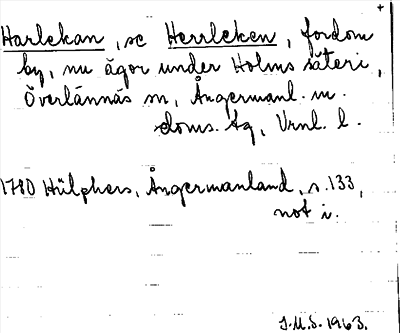 +
Harlekan, se Herrleken, fordom
by, nu ägor under Holms säteri,
Överlännäs sn, Ångermanl. m.
doms. tg, Vrnl. l.
1780 Hülphers, Ångermanland, s. 133,
not i.
J.M.S. 1963.